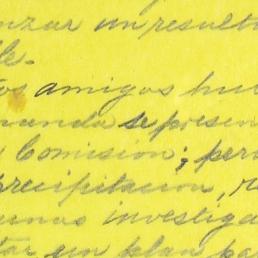 nzar un resulta
le.
os amigos hu
manda se presen
Comision; per
precipitacion,
unas investiga
tar un plan pa